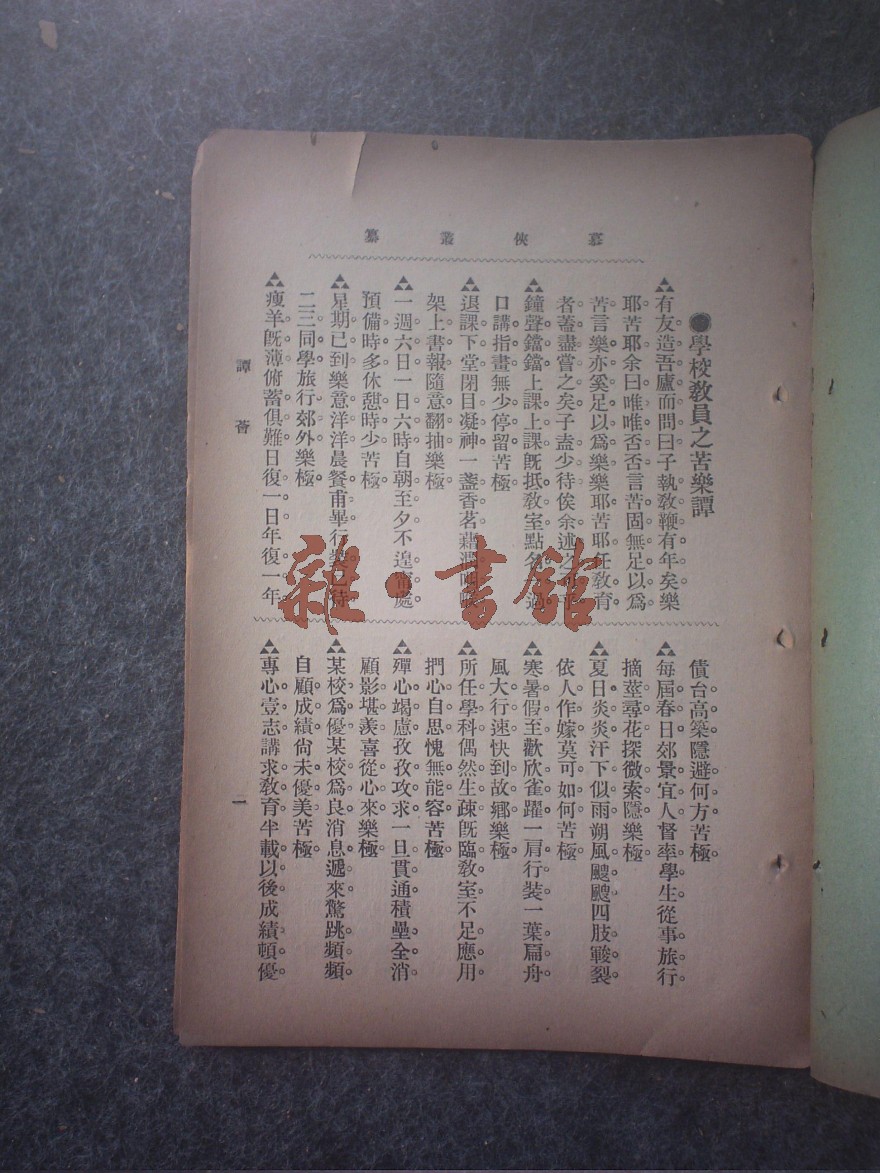 慕俠叢纂
●學校教員之苦樂譚
有友造吾廬而問曰子執教鞭有年矣樂
耶苦耶余曰唯唯否否言苦固無足以爲
苦言樂亦奚足以爲樂樂耶苦耶任教育
者蓋盡嘗之矣子盍少待俟余述之可乎
鐘聲鐺鐺上課上課旣抵教室點名
口講指畫無少停留苦極
退課下堂閉目凝神一盞香茗藉潤
架上書報隨意翻抽樂極
一週六日一日六時自朝至夕不遑甯處
預備時多休憩時少苦極
星期已到樂意洋洋晨餐甫畢行裝已待
二三同學旅行郊外樂極
瘦羊旣薄俯蓄俱難日復一日年復一年
債台高築隱避何方苦極
每屆春日郊景宜人督率學生從事旅行
摘莖尋花探微索隱樂極
夏日炎炎汗下似雨朔風颼颼四肢皸裂
依人作嫁莫可如何苦極
寒暑假至歡欣雀躍一肩行裝一葉扁舟
風大行速快到故鄉樂極
所任學科偶然生疎旣臨教室不足應用
捫心自思愧無能容苦極
殫心竭慮孜孜攻求一旦貫通積壘全消
顧影堪羨喜從心來樂極
某校爲優某校爲良消息遞來驚跳頻頻
自顧成績尙未優美苦極
專心壹志講求教育半載以後成績頓優
譚薈
一
雜·書館